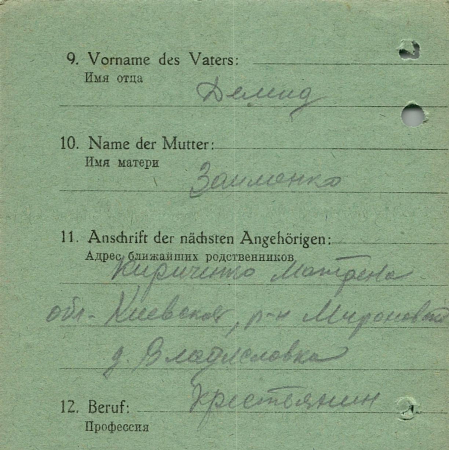 9. Vorname des Vaters:
Имя отца
Демид
10. Name der Mutter:
Имя матери
Заименко
11. Anschrift der nächsten Angehörigen:
Адрес ближайших родственников
Кириченко Матрена
обл. Киевская, р-н
д. Владиславка
12. Beruf: Крестьянин
Профессия